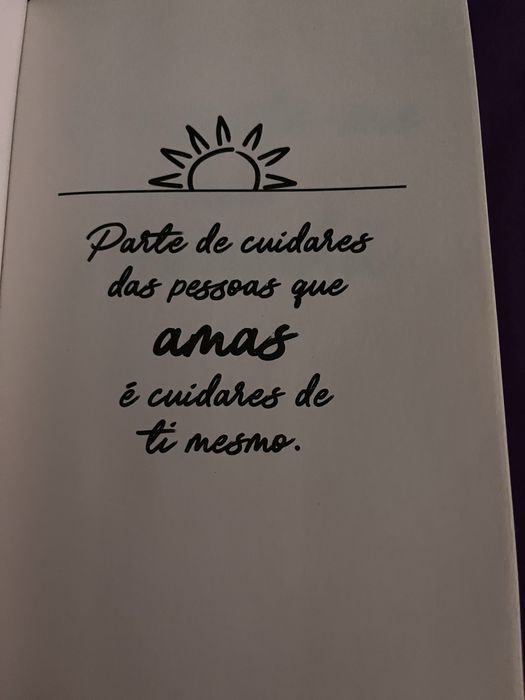 Parte de cuidares
das pessoas que
amas
é cuidares de
ti mesmo.